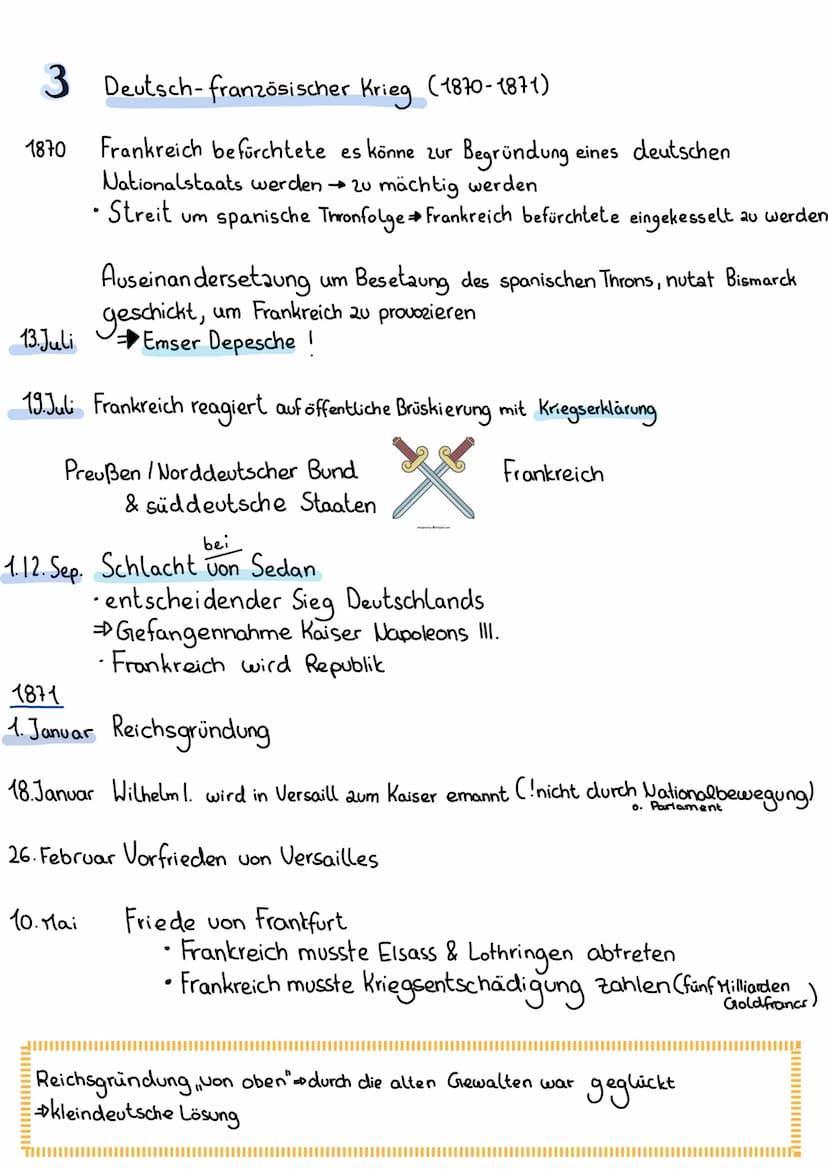 3 Deutsch-französischer Krieg (1870-1871)
1870 Frankreich befürchtete es könne zur Begründung eines deutschen
Nationalstaats werden → zu mächtig werden
• Streit um spanische Thronfolge ⇒ Frankreich befürchtete eingekesselt zu werden
Auseinandersetzung um Besetzung des spanischen Throns, nutzt Bismarck
geschickt, um Frankreich zu provozieren
13. Juli ⇒ Emser Depesche !
19. Juli Frankreich reagiert auf öffentliche Brüskierung mit Kriegserklärung
Preußen / Norddeutscher Bund Frankreich
& süddeutsche Staaten
bei
1.12. Sep. Schlacht von Sedan
• entscheidender Sieg Deutschlands
⇒ Gefangennahme Kaiser Napoleons III.
• Frankreich wird Republik
1871
1. Januar Reichsgründung
18. Januar Wilhelm I. wird in Versaill zum Kaiser ernannt (!nicht durch Nationalbewegung)
o. Parlament
26. Februar Vorfrieden von Versailles
10. Mai Friede von Frankfurt
• Frankreich musste Elsass & Lothringen abtreten
• Frankreich musste Kriegsentschädigung zahlen (fünf Milliarden
Goldfrancs)
Reichsgründung „von oben" ⇒ durch die alten Gewalten war geglückt
⇒ kleindeutsche Lösung